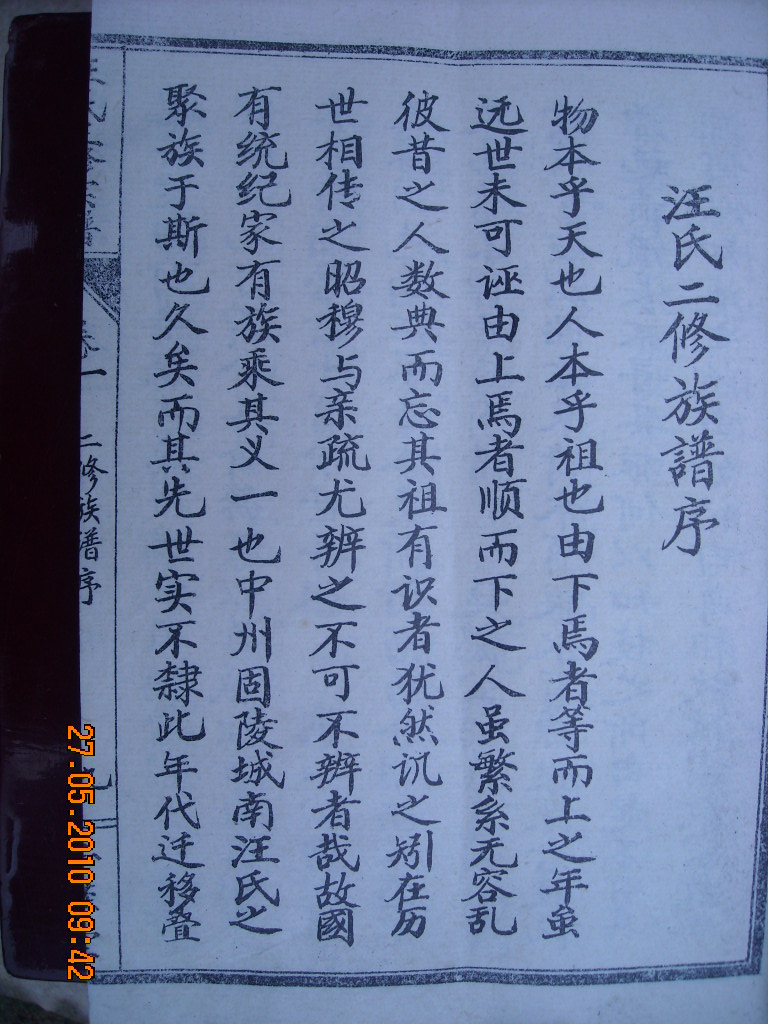 汪氏二修族譜序
物本乎天也人本乎祖也由下焉者等而上之年虽
远世未可诬由上焉者顺而下之人虽繁系无容乱
彼昔之人数典而忘其祖有识者犹然讥之矧在历
世相传之昭穆与亲疏尤辨之不可不辨者哉故國
有统纪家有族乘其义一也中州固陵城南汪氏之
聚族于斯也久矣而其先世实不隸此年代迁移叠
卷一
二修族谱序
27.05.2010 09:42